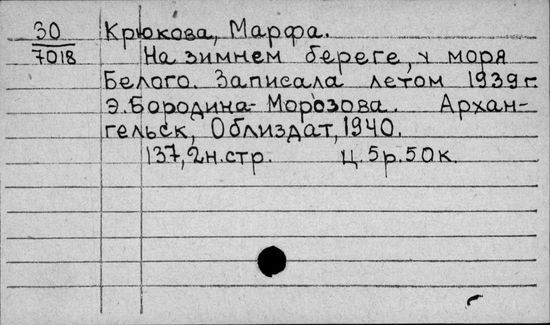 30 Крюкова, Марфа.
7018 На зимнем береге, у моря
Белого. Записала летом 1939 г.
Э. Бородина-Морозова. Архан-
гельск, Облиздат, 1940.
137,2н.стр. Ц. 5р.50к.